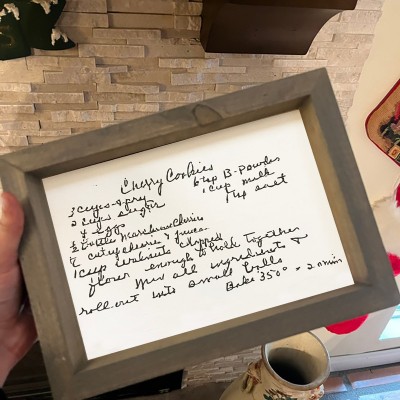 Cherry Cookies
3 cups spry
2 cups sugar
4 eggs
6 tsp B-Powder
1 cup milk
1 tsp
½ Bottle Maraschino Cherries
cut cherries & juice
1 cup walnuts chopped
flour enough to hold together
Mix all ingredients &
roll out into small balls
Bake 350°